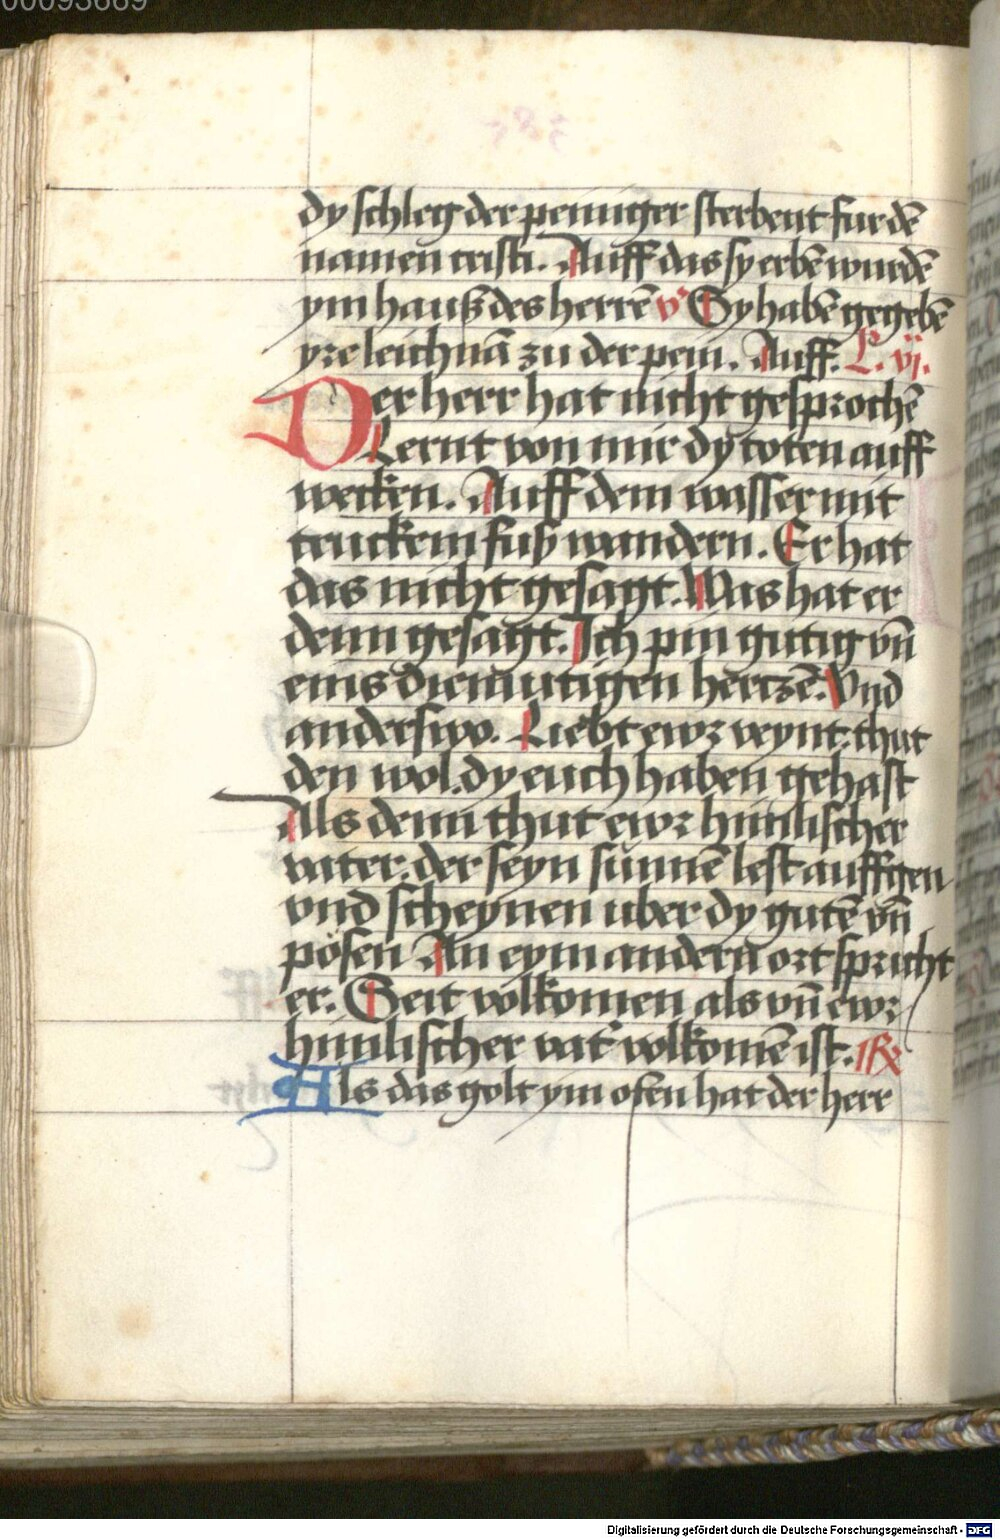 00093669
dy schleg der peiniger sterbent fur dē
namen cristi. Auff das sy erbē wurdē
ym hauß des herrē v̛ Sy habē gegebē
yre leichnā zu der pein. Auff. L. vj.
Der herr hat nicht gesprochē
Lernt von mir dy toten auff
wecken. Auff dem wasser mit
truckem fuß wandern. Er hat
das nicht gesagt. Was hat er
denn gesagt. Ich pin gutig vn̄
eins diemutigen hertzē. Vnd
anderswo. Liebt ewr veynt. thut
den wol. dy euch haben gehast
Als denn thut ewr himlischer
vater. der seyn sunnē lest auffgen
vnd scheynen uber dy gutē vn̄
pösen An eym andern ort spricht
er. Seit volkomen als vn̄ ewr
himlischer vat̓ volkomē ist. R̛
Als das golt ym ofen hat der herr
Digitalisierung gefördert durch die Deutsche Forschungsgemeinschaft - DFG